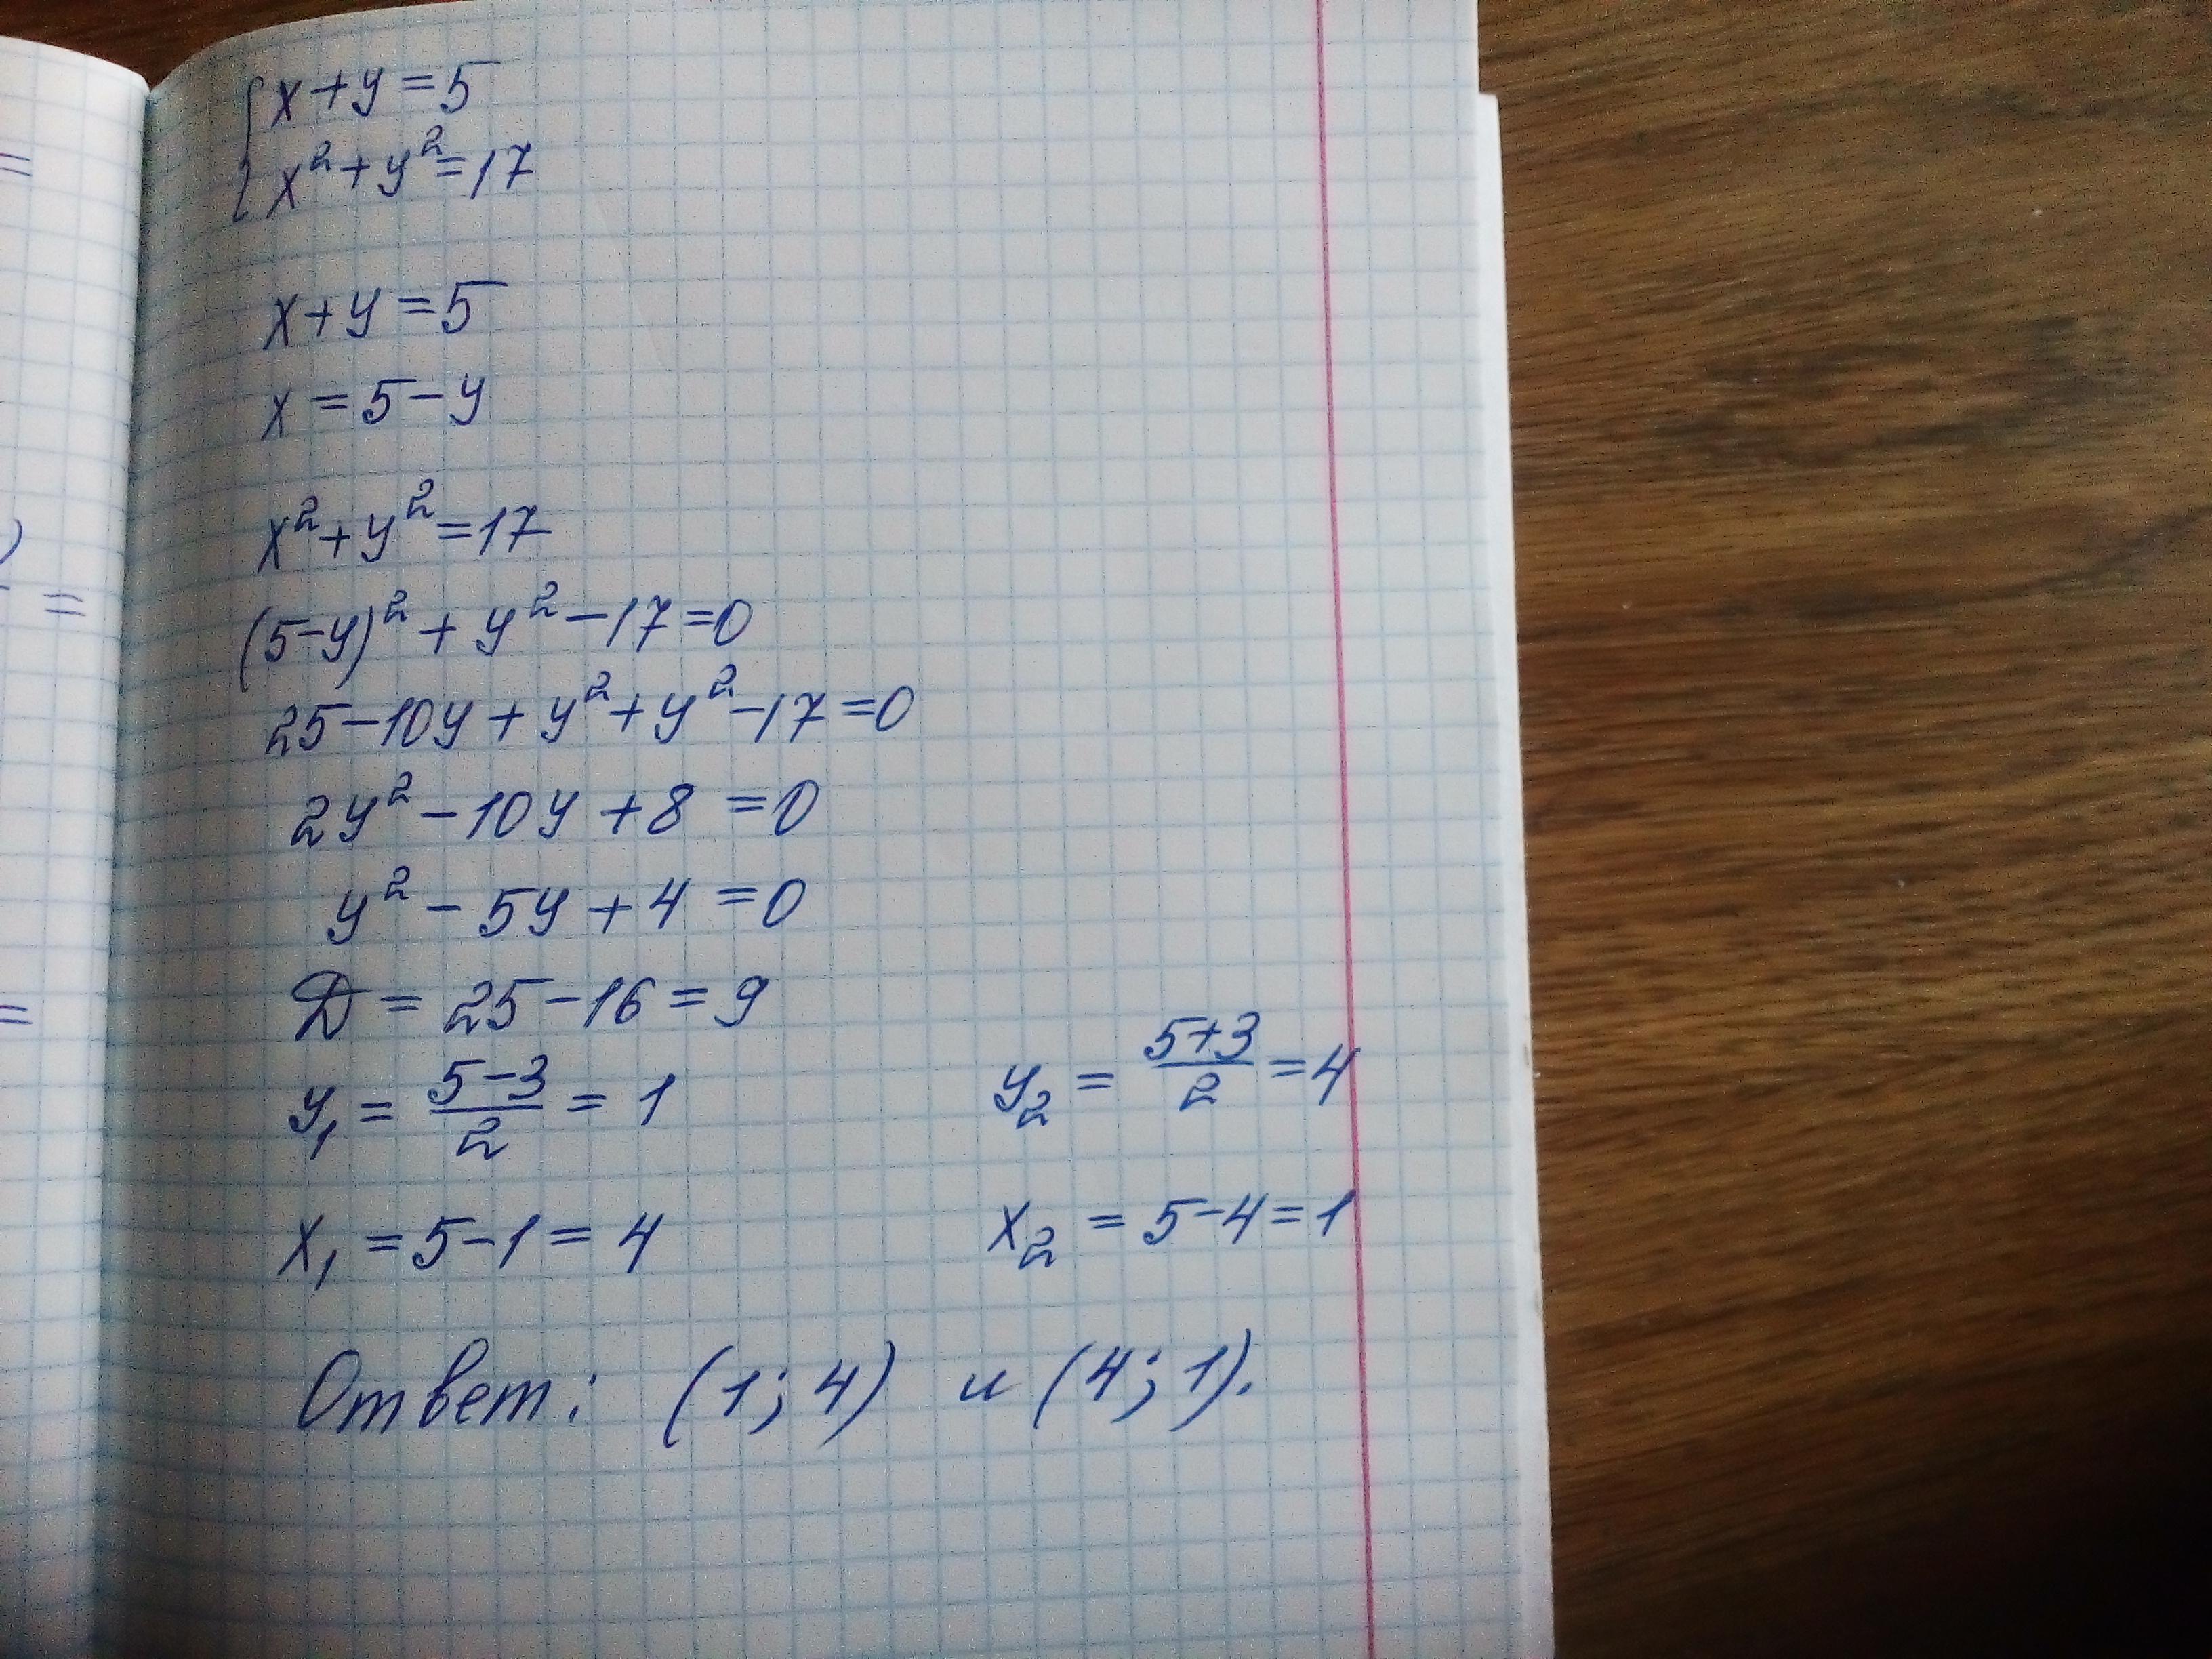 {x+y=5
x²+y²=17
x+y=5
x=5-y
x²+y²=17
(5-y)²+y²-17=0
25-10y+y²+y²-17=0
2y²-10y+8=0
y²-5y+4=0
Д=25-16=9
y₁=(5-3)/2=1 y₂=(5+3)/2=4
x₁=5-1=4 x₂=5-4=1
Ответ: (1;4) и (4;1).
=
)
=
=